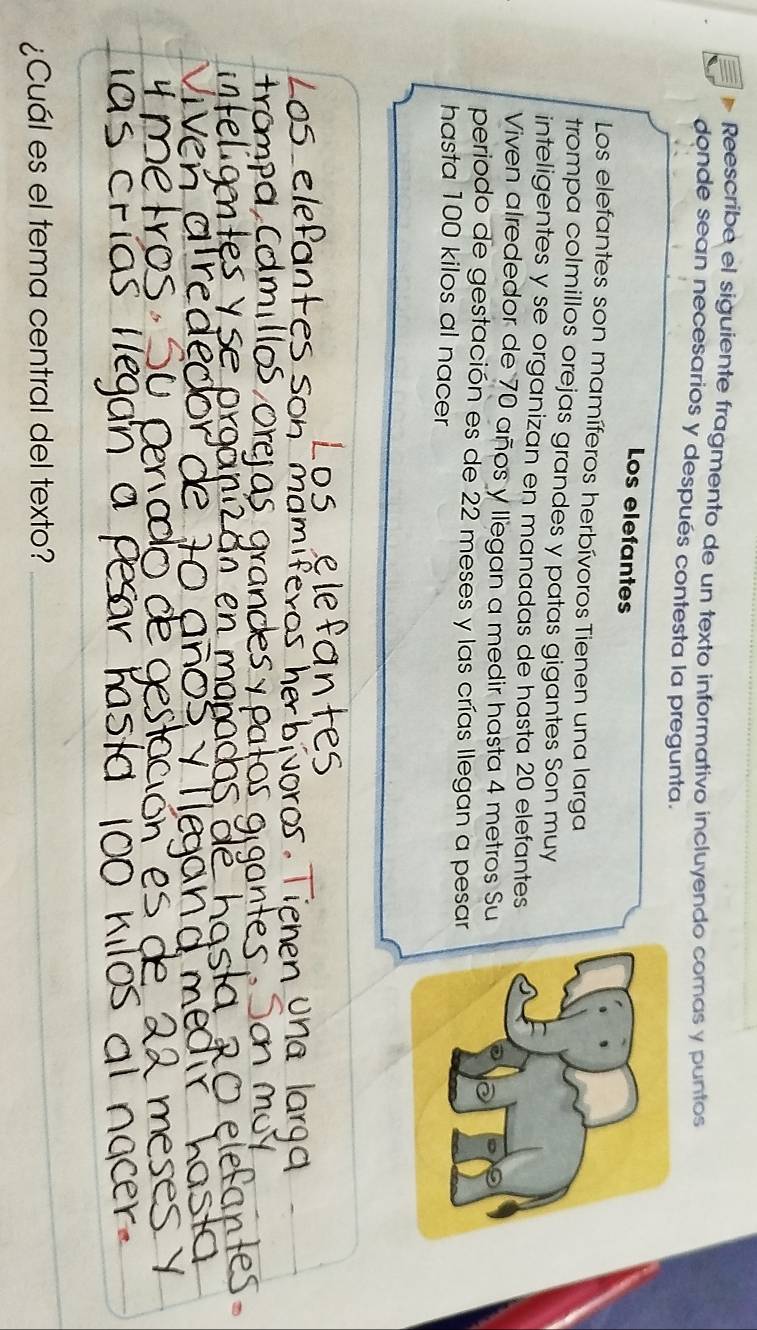 Reescribe el siguiente fragmento de un texto informativo incluyendo comas y puntos
donde sean necesarios y después contesta la pregunta.
Los elefantes
Los elefantes son mamíferos herbívoros Tienen una larga
trompa colmillos orejas grandes y patas gigantes Son muy
inteligentes y se organizan en manadas de hasta 20 elefantes
Viven alrededor de 70 años y llegan a medir hasta 4 metros Su
periodo de gestación es de 22 meses y las crías llegan a pesar
hasta 100 kilos al nacer
Los elefantes
Los elefantes son mamiferos herbívoros. Tienen una larga
trompa, colmillos, orejas grandes y patas gigantes. Son muy
inteligentes y se organizan en manadas de hasta 20 elefantes.
Viven alrededor de 70 años y llegan a medir hasta
4 metros. Su periodo de gestación es de 22 meses y
las crías llegan a pesar hasta 100 kilos al nacer.
¿Cuál es el tema central del texto?